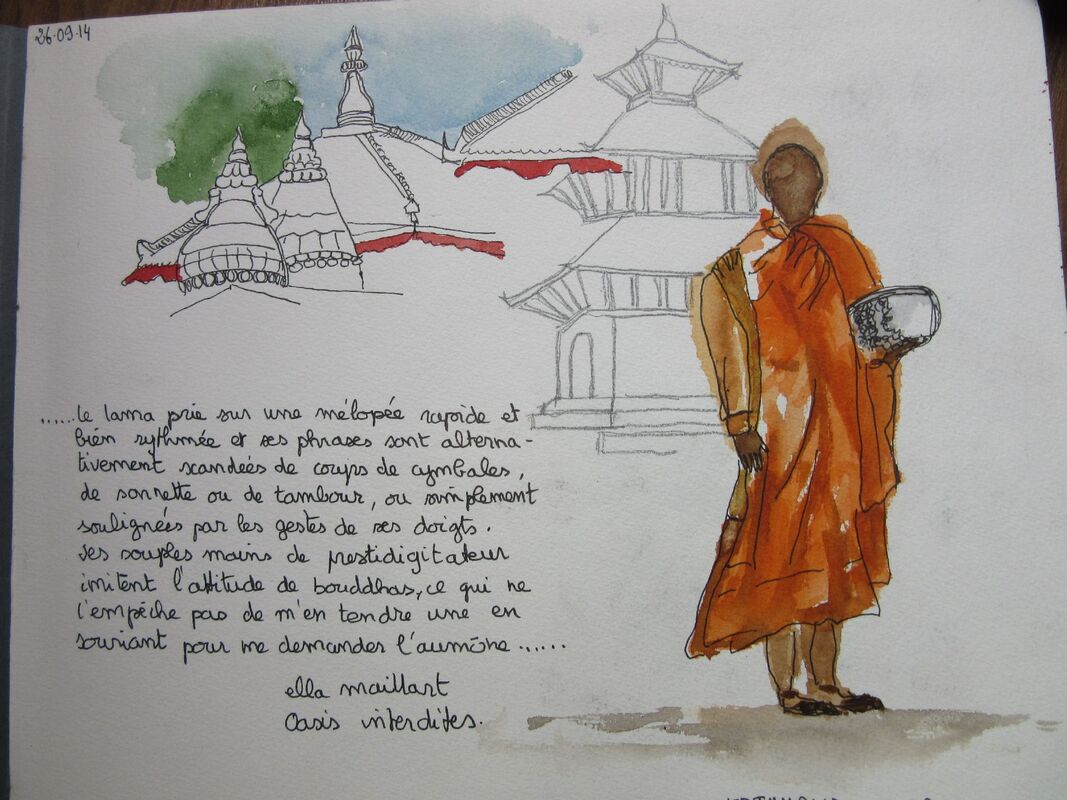 26.09.14
......le lama prie sur une mélopée rapide et
bien rythmée et ses phrases sont alterna-
tivement scandées de coups de cymbales,
de sonnette ou de tambour, ou simplement
soulignées par les gestes de ses doigts.
Ses souples mains de prestidigitateur
imitent l'attitude de bouddhas, ce qui ne
l'empêche pas de m'en tendre une en
souriant pour me demander l'aumône......
ella maillart
Oasis interdites.